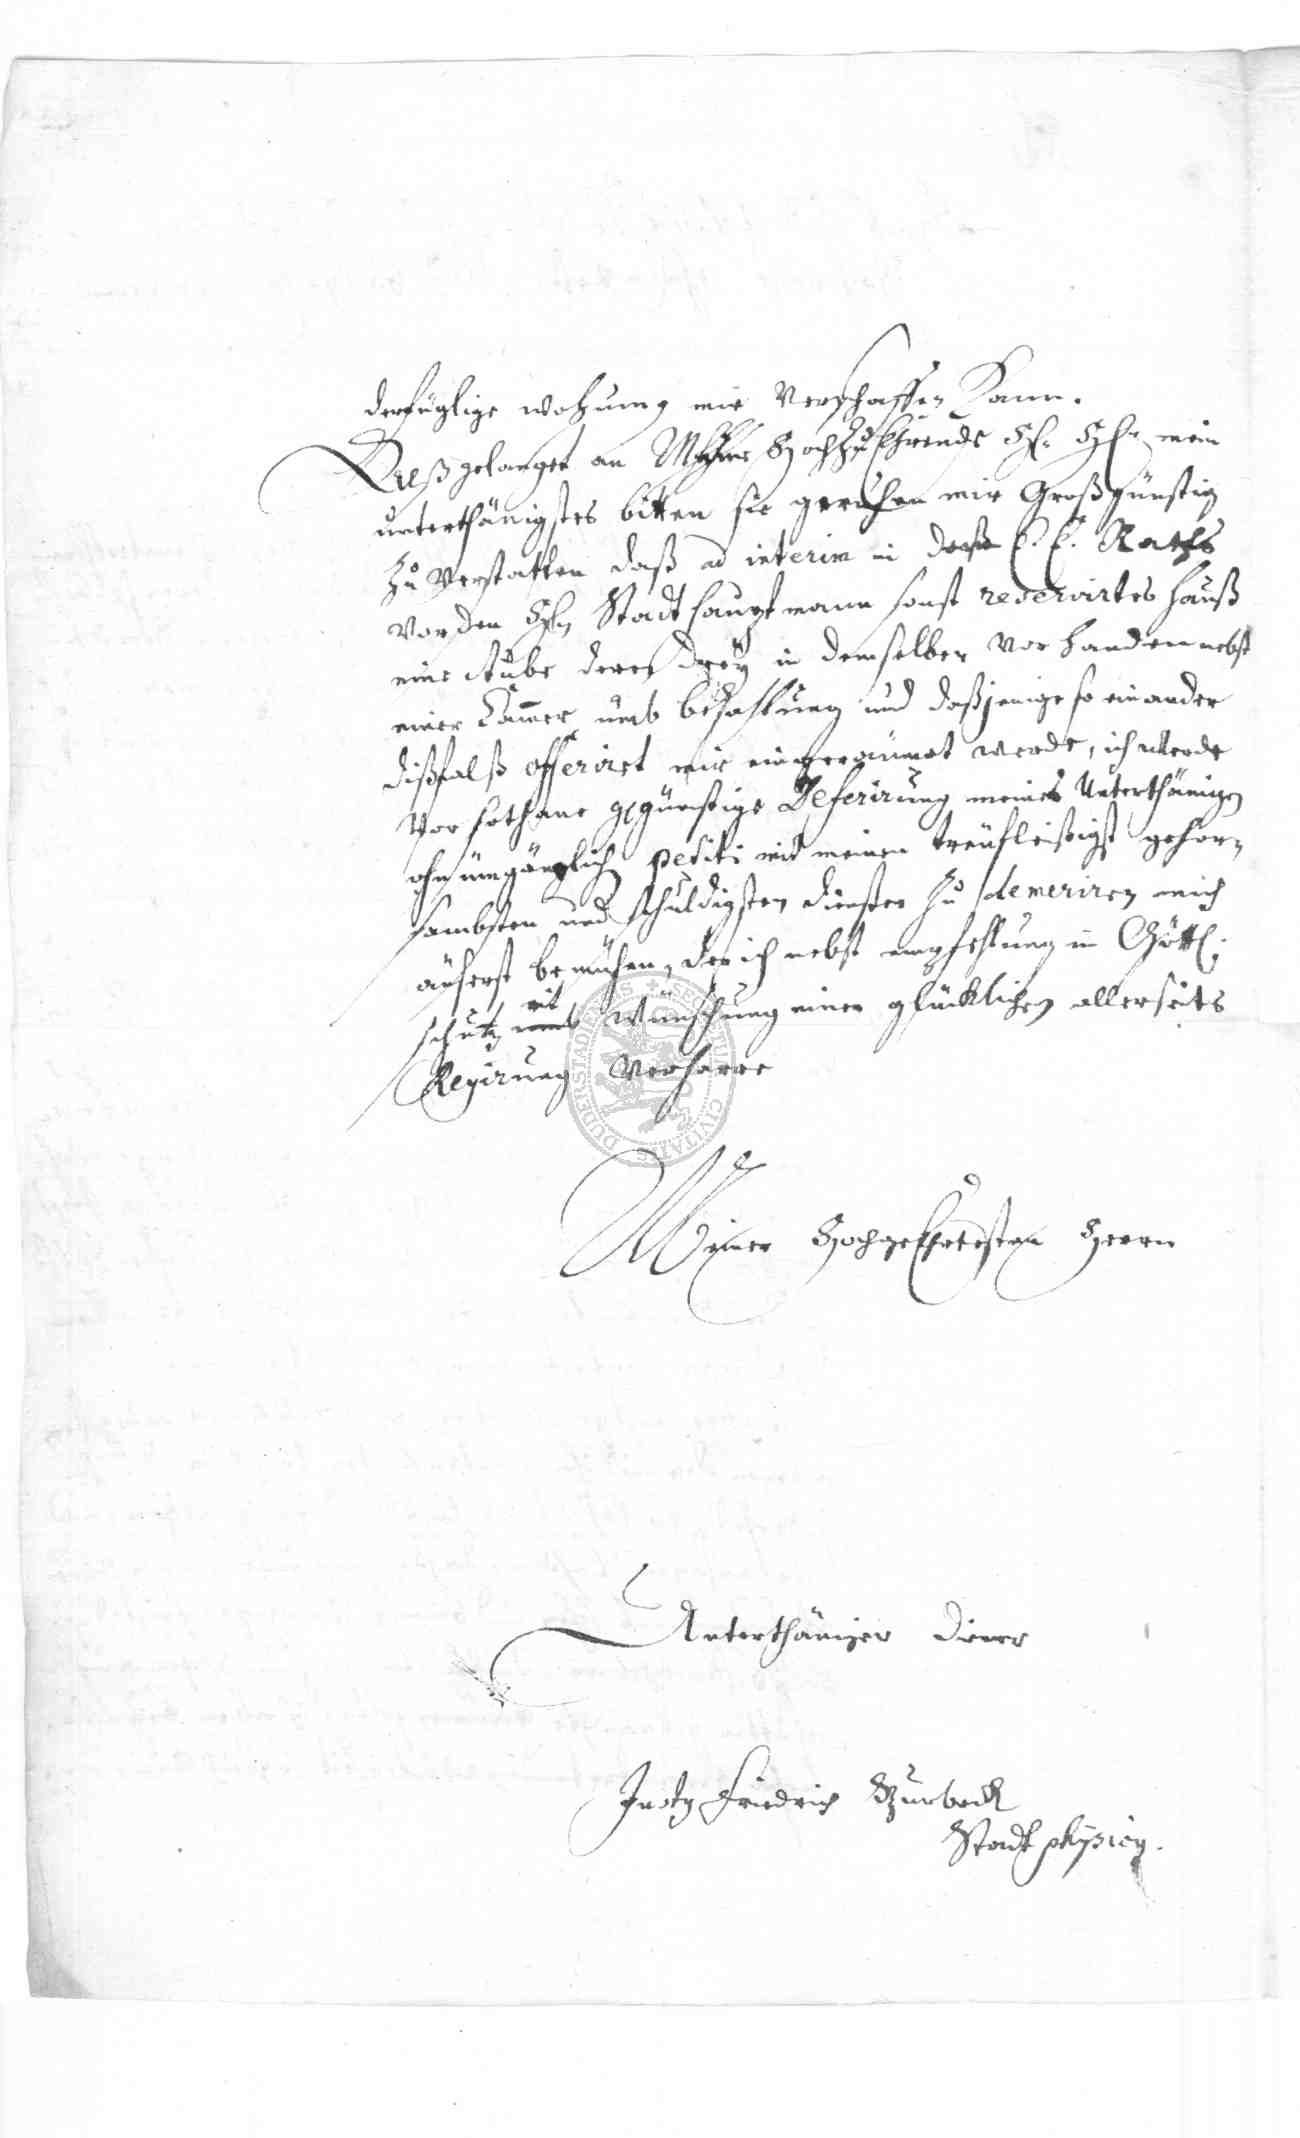 derfüglige wohnung mir verschaffen Kann.
Dieß gelanget an Meine HochzuEhrende H. HH. mein
unterthänigstes bitten sie geruhen mir Großgünstig
zu verstatten daß ad interim in dero E. E. Raths
vor den HHn Stadthauptmann sonst reservirtes hauß
eine stube deren drey in demselben vorhanden nebst
einer Cammer umb bezahlung und daßjenige so ein ander
dißfalß offeriret mir eingeräumet werde, ich werde
vor sothane ggünstige Deferirung meines Unterthänigen
ohnumgänglich petiti mit meinen treufleißigst gehor-
sambsten und schuldigsten diensten zu demeriren mich
äuserst bemühen, der ich nebst empfehlung in Göttl.
schutz mit wünschung einer glücklichen allerseits
Regirung verharre
Meiner Hochgeehrtesten Herrn
Unterthäniger diener
Friedrich
Stadt physicq.
DUDERSTADIENSIS + SECRETUM CIVITATIS